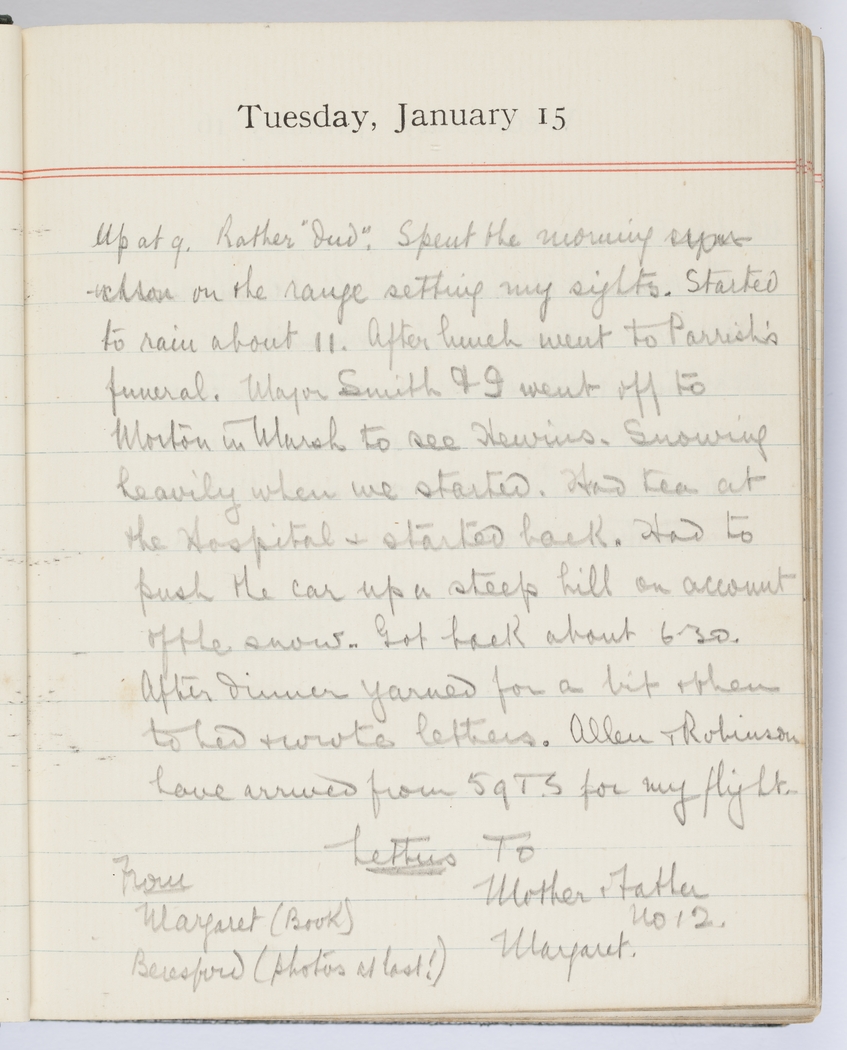 Tuesday, January 15
Up at 9. Rather "dud". Spent the morning
on the range setting my sights. Started
to rain about 11. After lunch went to Parrish's
funeral. Major Smith & I went off to
Morton in Marsh to see Hewins. Snowing
heavily when we started. Had tea at
the Hospital & started back. Had to
push the car up a steep hill on account
of the snow.. Got back about 6-30.
After dinner yarned for a bit & then
to bed & wrote letters. Allen & Robinson
have arrived from 59 T.S for my flight.
Letters To
From
Mother & Father
No 12.
Margaret (Book)
Margaret.
Beresford (photos at last!)